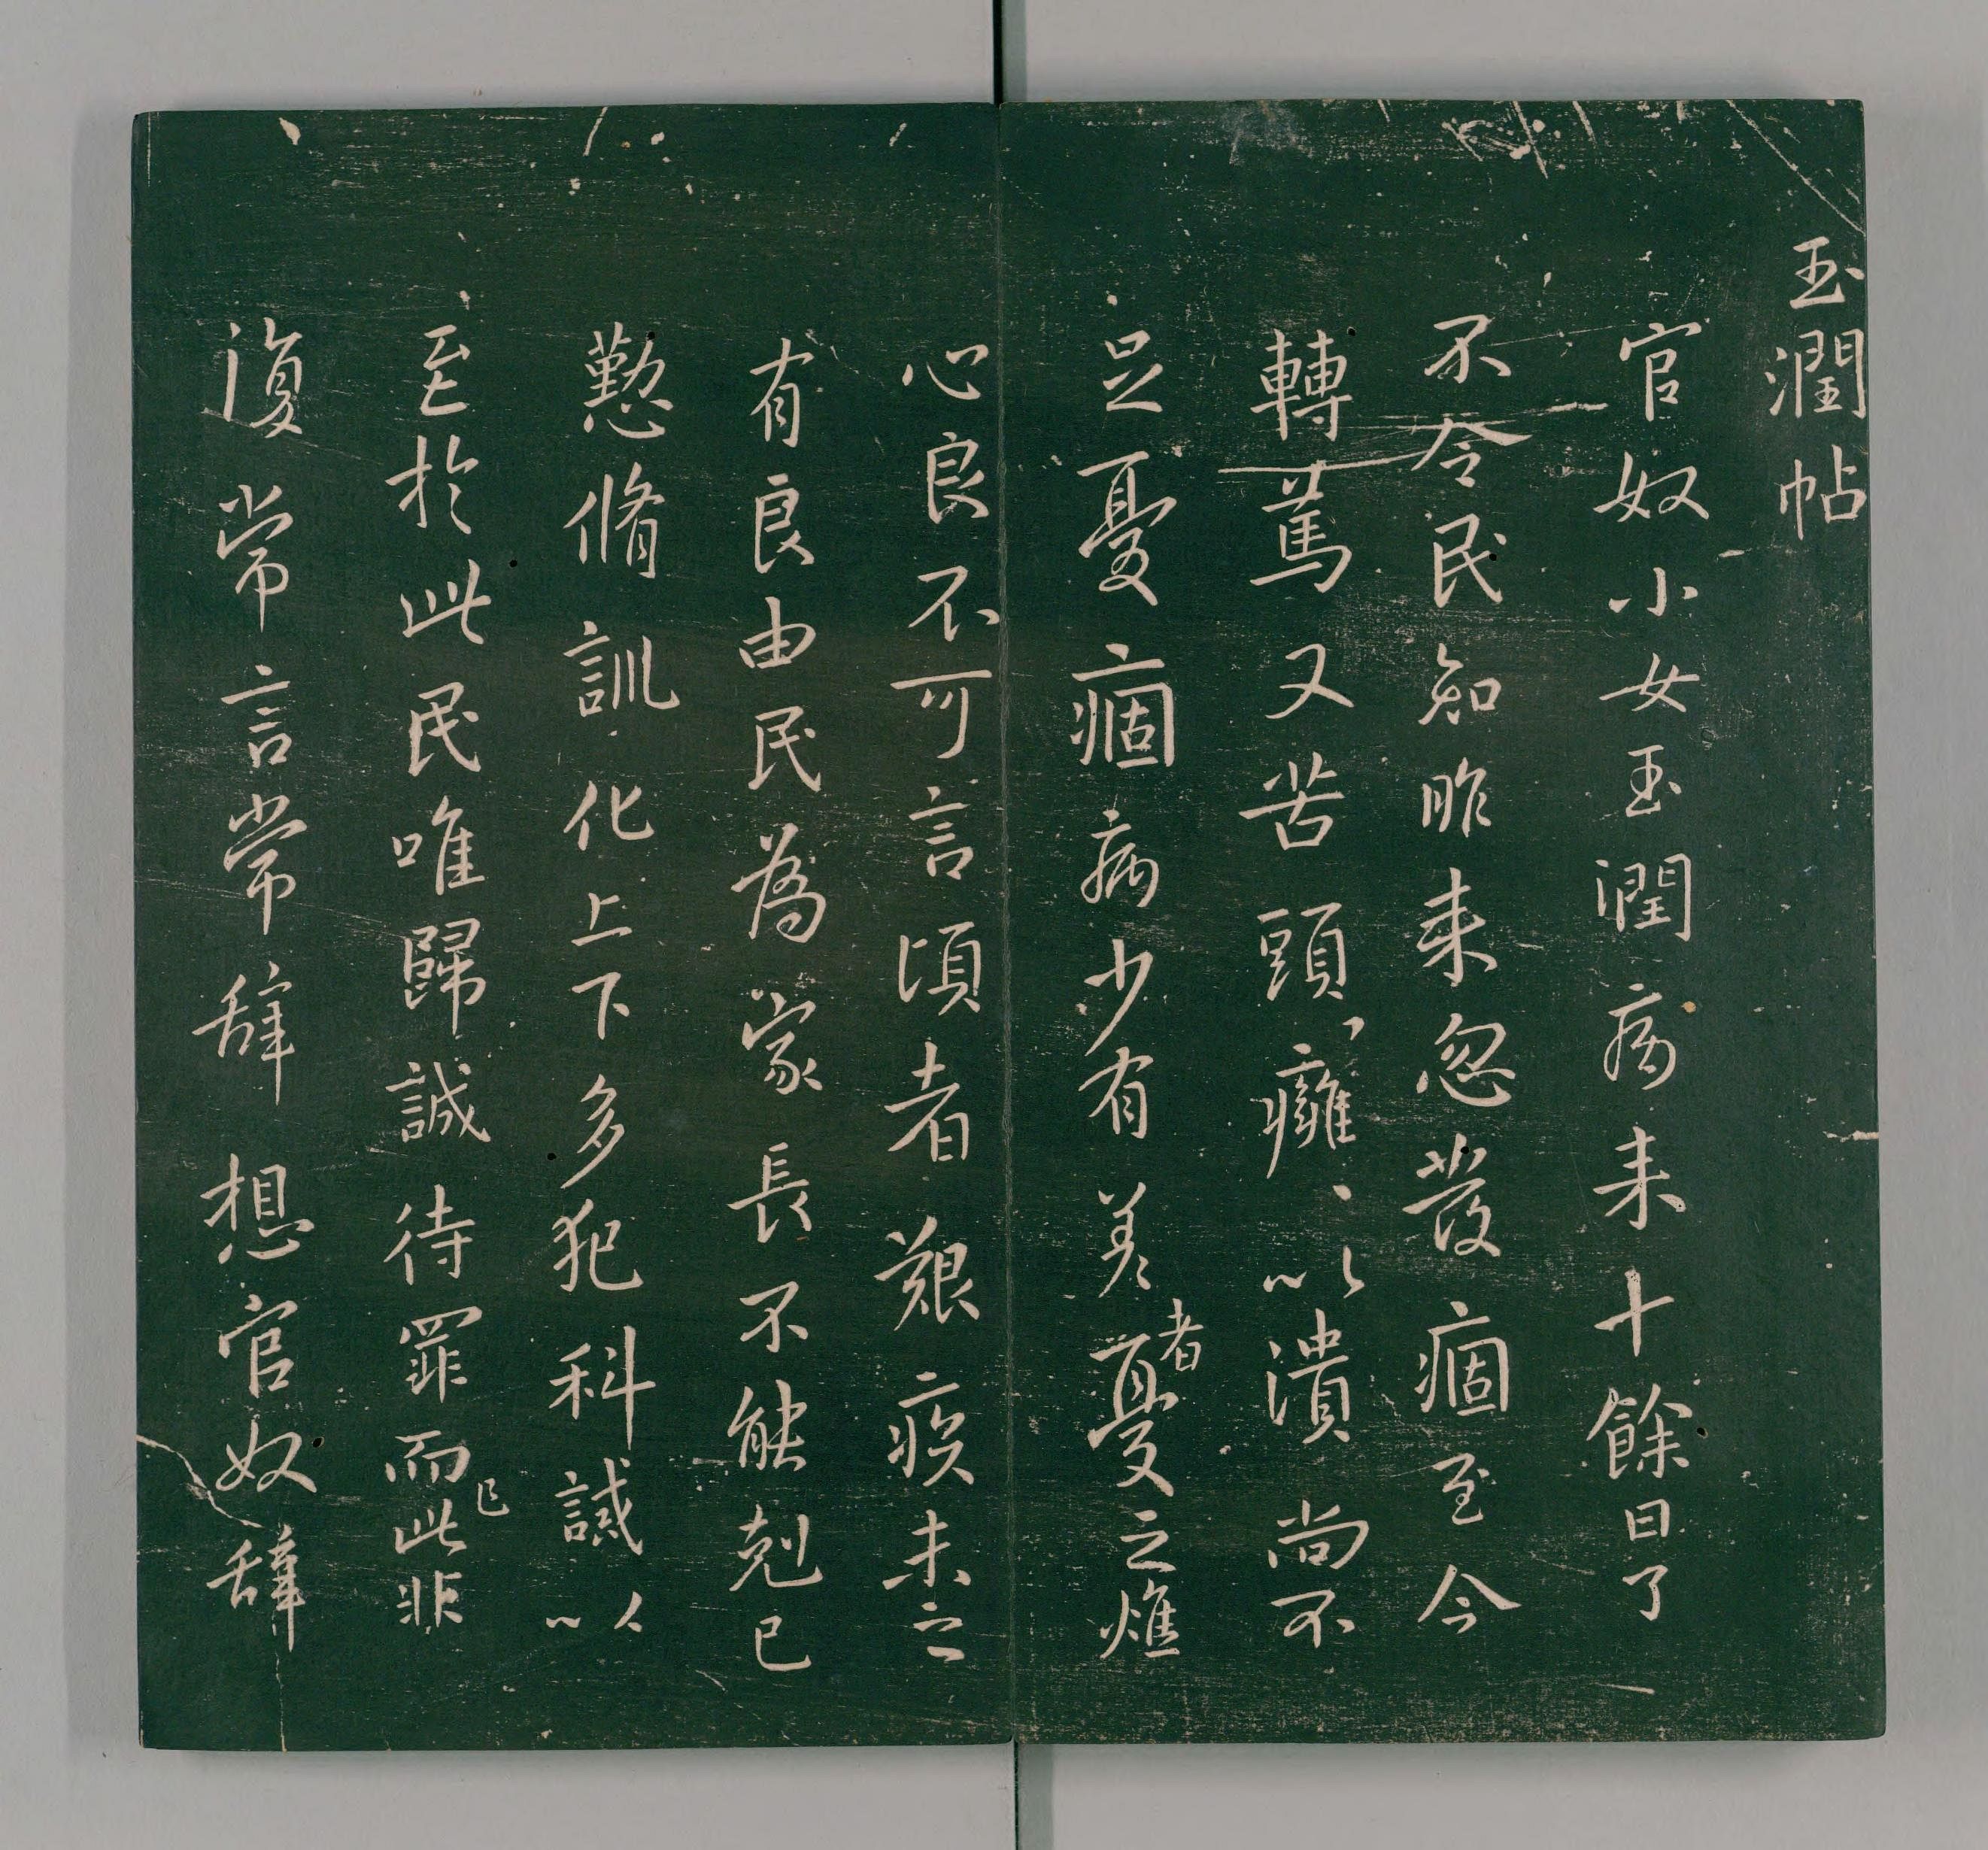 玉潤帖
官奴小女玉潤病来十餘日了
不令民知昨来忽發痼至今
轉篤又苦頭癰癰以潰尚不
足憂痼病少有差者憂之燋
心良不可言頃者艱疾未之
有良由民為家長不能剋已
懃脩訓化上下多犯科誡以
至於此民唯歸誠待罪而已此非
復常言常辞想官奴辞